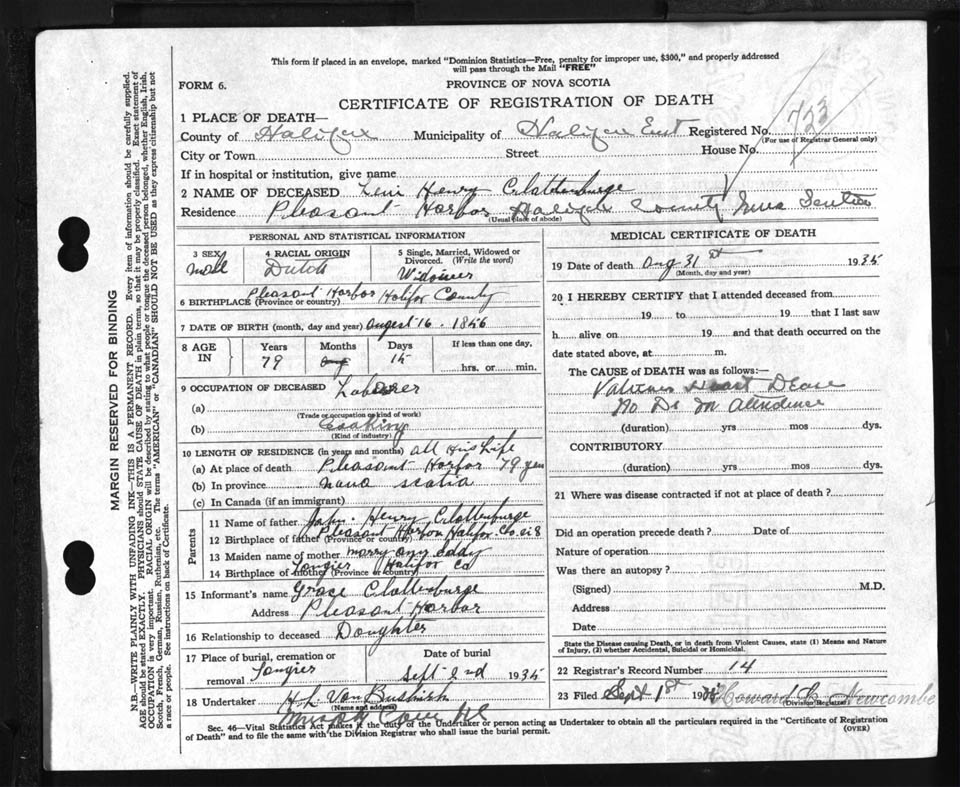 This form if placed in an envelope, marked "Dominion Statistics—Free, penalty for improper use, $300," and properly addressed
will pass through the Mail "FREE"
FORM 6.
PROVINCE OF NOVA SCOTIA
CERTIFICATE OF REGISTRATION OF DEATH
723
1 PLACE OF DEATH—
County of Halifax Municipality of Halifax East Registered No.
(For use of Registrar General only)
City or Town Street House No.
If in hospital or institution, give name
2 NAME OF DECEASED Levi Henry Clattenburge
Residence Pleasant Harbor Halifax County Nova Scotia
(Usual place of abode)
PERSONAL AND STATISTICAL INFORMATION
3 SEX 4 RACIAL ORIGIN 5 Single, Married, Widowed or
Divorced. (Write the word)
male Dutch Widower
Pleasant Harbor Halifax County
6 BIRTHPLACE (Province or country)
7 DATE OF BIRTH (month, day and year) August 16. 1856
8 AGE IN Years Months Days If less than one day,
79 15 hrs. or min.
9 OCCUPATION OF DECEASED Laborer
(a)
(Trade or occupation or kind of work)
(b)
(Kind of industry)
10 LENGTH OF RESIDENCE (in years and months) all His Life
(a) At place of death Pleasant Harbor 79 years
(b) In province nova scotia
(c) In Canada (if an immigrant)
Parents
11 Name of father John. Henry Clattenburge
12 Birthplace of father (Province or country) Pleasant Harbor Halifax. Co.
13 Maiden name of mother marry any eddy
14 Birthplace of mother (Province or country) Tangier Halifax Co
15 Informant's name Grace Clattenburge
Address Pleasant Harbor
16 Relationship to deceased Doughter
17 Place of burial, cremation or Date of burial
removal Tangier Sept 2nd 1935
18 Undertaker H. L. Van Buskirk
(Name and address)
MEDICAL CERTIFICATE OF DEATH
19 Date of death Aug 31st 1935
(Month, day and year)
20 I HEREBY CERTIFY that I attended deceased from
19 to 19 that I last saw
h alive on 19 and that death occurred on the
date stated above, at m.
The CAUSE of DEATH was as follows:—
Heart
No Dr In attendence
(duration) yrs mos dys.
CONTRIBUTORY
(duration) yrs mos dys.
21 Where was disease contracted if not at place of death?
Did an operation precede death? Date of
Nature of operation
Was there an autopsy?
(Signed) M.D.
Address
Date
State the Disease causing Death, or in death from Violent Causes, state (1) Means and Nature
of Injury, (2) whether Accidental, Suicidal or Homicidal.
22 Registrar's Record Number 14
23 Filed Sept 1st 1935 Howard L. Newcombe
(Division Registrar)
Sec. 46—Vital Statistics Act makes it the duty of the Undertaker or person acting as Undertaker to obtain all the particulars required in the "Certificate of Registration
of Death" and to file the same with the Division Registrar who shall issue the burial permit.
(OVER)
MARGIN RESERVED FOR BINDING
N.B.—WRITE PLAINLY WITH UNFADING INK—THIS IS A PERMANENT RECORD. Ever item of information should be carefully supplied.
AGE should be stated EXACTLY. PHYSICIANS should STATE CAUSE OF DEATH in plain terms, so that it may be properly classified. Exact statement of
OCCUPATION is very important. RACIAL ORIGIN will be described by stating to what people or tongue the deceased person belonged, whether English, Irish,
Scotch, French, German, Russian, Ruthenian, etc. The terms "AMERICAN" or "CANADIAN" SHOULD NOT BE USED as they express citizenship but not
a race or people. See instructions on back of Certificate.